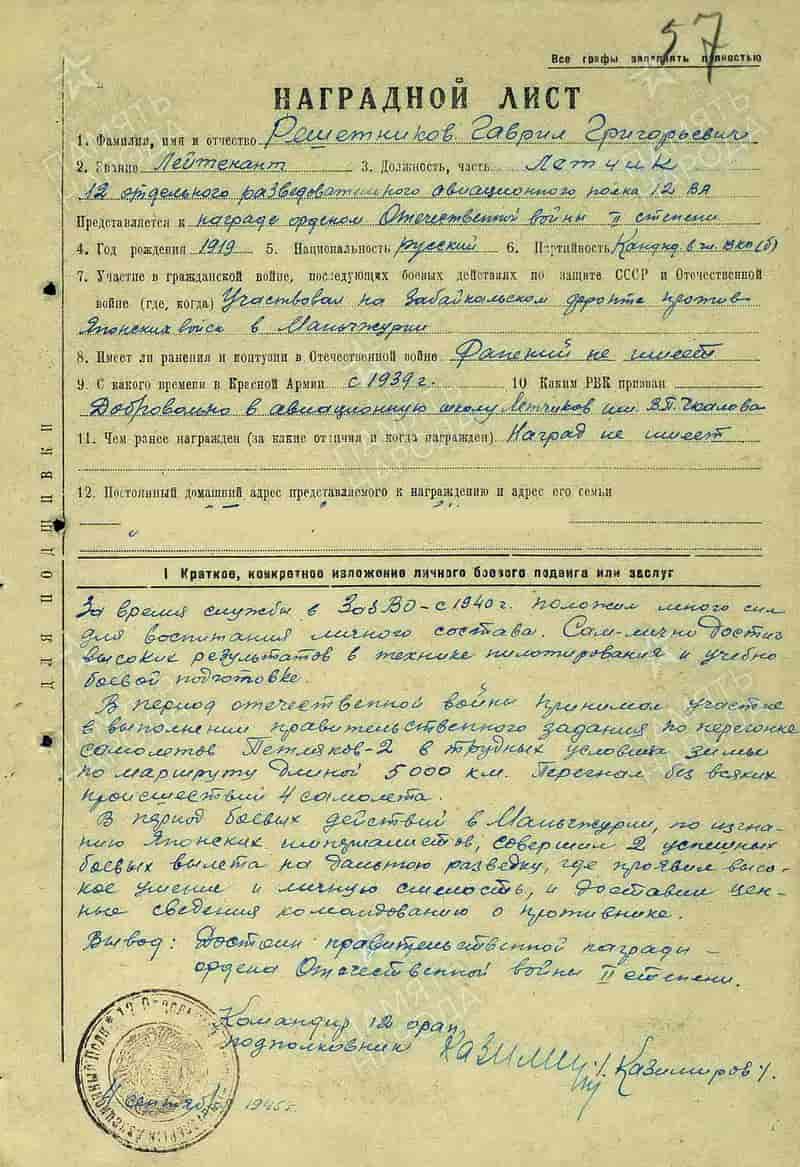 57
Все графы заполнять полностью
НАГРАДНОЙ ЛИСТ
1. Фамилия, имя и отчество Решетников Гаврил Григорьевич
2. Звание Лейтенант 3. Должность, часть Летчик
12 отдельного разведовательного авиационного полка 12 ВА
Представляется к награде орденом Отечественной войны II степени
4. Год рождения 1919 5. Национальность русский 6. Партийность Кандид. в чл. ВКП(б)
7. Участие в гражданской войне, последующих боевых действиях по защите СССР и Отечественной
войне (где, когда) Участвовал на Забайкальском фронте против
Японских войск в Маньчжурии
8. Имеет ли ранения и контузии в Отечественной войне Ранений не имеет
9. С какого времени в Красной Армии с 1939 г. 10 Каким РВК призван
Добровольно в авиационную школу Летчиков им. В.П. Чкалова
11. Чем ранее награжден (за какие отличия и когда награжден) Наград не имеет
12. Постоянный домашний адрес представляемого к награждению и адрес его семьи
ДЛЯ ПОДШИВКИ
I Краткое, конкретное изложение личного боевого подвига или заслуг
За время службы в ЗабВО - с 1940 г. положил много сил
для воспитания личного состава. Сам-лично достиг
высоких результатов в технике пилотирования и учебно
боевой подготовке.
В период отечественной войны принимал участие
в выполнении правительственного задания по перегонке
самолетов Петляков-2 в трудных условиях зимы
по маршруту длиной 5000 км. Перегнал без всяких
происшествий 4 самолета.
В период боевых действий в Маньчжурии, по изгна-
нию Японских империалистов, совершил 2 успешных
боевых вылета на дальнюю разведку, где проявил высо-
кое умение и личную смелость, и доставил цен-
ные сведения командованию о противнике.
Вывод: Достоин правительственной награды -
ордена Отечественной войны II степени.
Командир 12 орап
подполковник /Казимиров/.
сентября 1945 г.